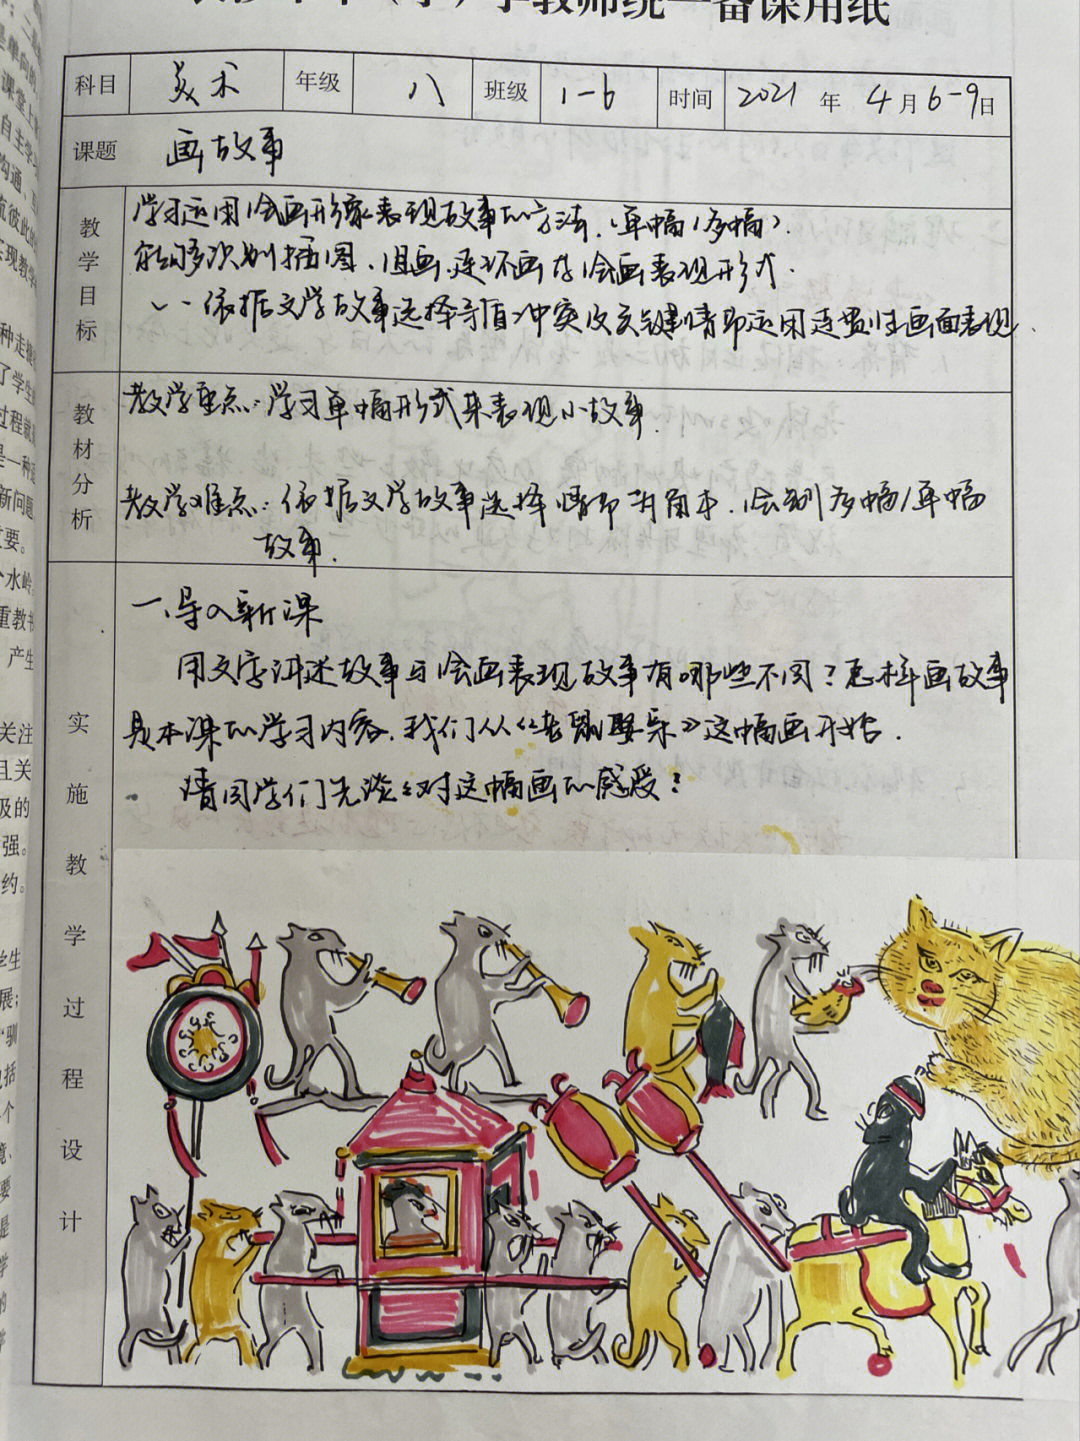 学教师统一备课用纸
科目 美术 年级 八 班级 1-6 时间 2021 年 4 月 6-9 日
课题 画故事
教学目标
学习运用绘画形象表现故事的方法、单幅/多幅）.
能够识别插图、组画、连环画等绘画表现形式.
依据文学故事选择矛盾冲突及关键情节运用连贯性画面表现.
教材分析
教学重点：学习单幅形式来表现小故事.
教学难点：依据文学故事选择情节为脚本，绘制多幅/单幅
故事.
实施教学过程设计
一、导入新课
用文字讲述故事与绘画表现故事有哪些不同？怎样画故事
是本课的学习内容.我们从《老鼠娶亲》这幅画开始.
请同学们先谈谈对这幅画的感受？